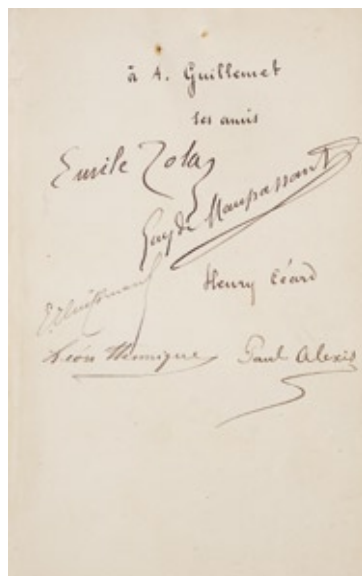 à A. Guillemet
ses amis
Emile Zola
Guy de Maupassant
Henry Céard
Léon Hennique Paul Alexis